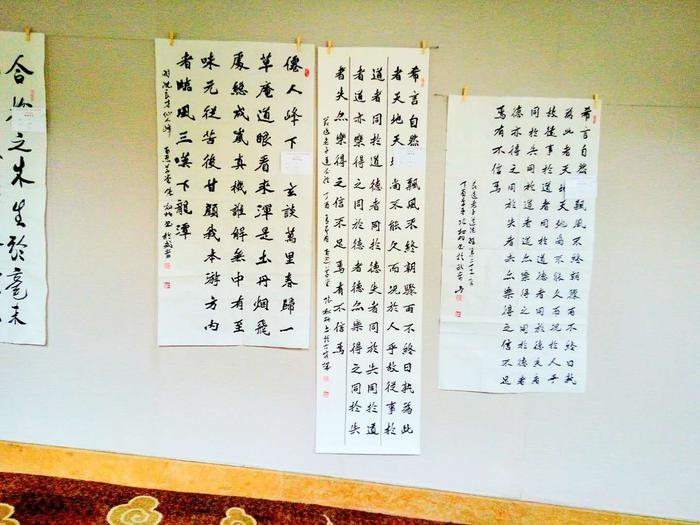 合抱之木生於毫末
僊人峰下玄談萬里春歸一
草庵道眼看來渾是土丹烟飛
處總成嵐真機誰解無中有至
味元從苦後甘顧我本游方內
者臨風三嘆下龍潭
希言自然飄風不終朝驟雨不終日孰為此
者天地天尚不能久而況於人乎故從事於
道者同於道德者同於德失者同於失同於道
者道亦樂得之同於德者德亦樂得之同於失
者失亦樂得之信不足焉有不信焉
希言自然飄風不終朝驟雨不終日孰
為此者天地天地尚不能久而況於人乎
故從事於道者同於道德者同於德失者
同於失同於道者道亦樂得之同於德者
德亦樂得之同於失者失亦樂得之信不足
焉有不信焉